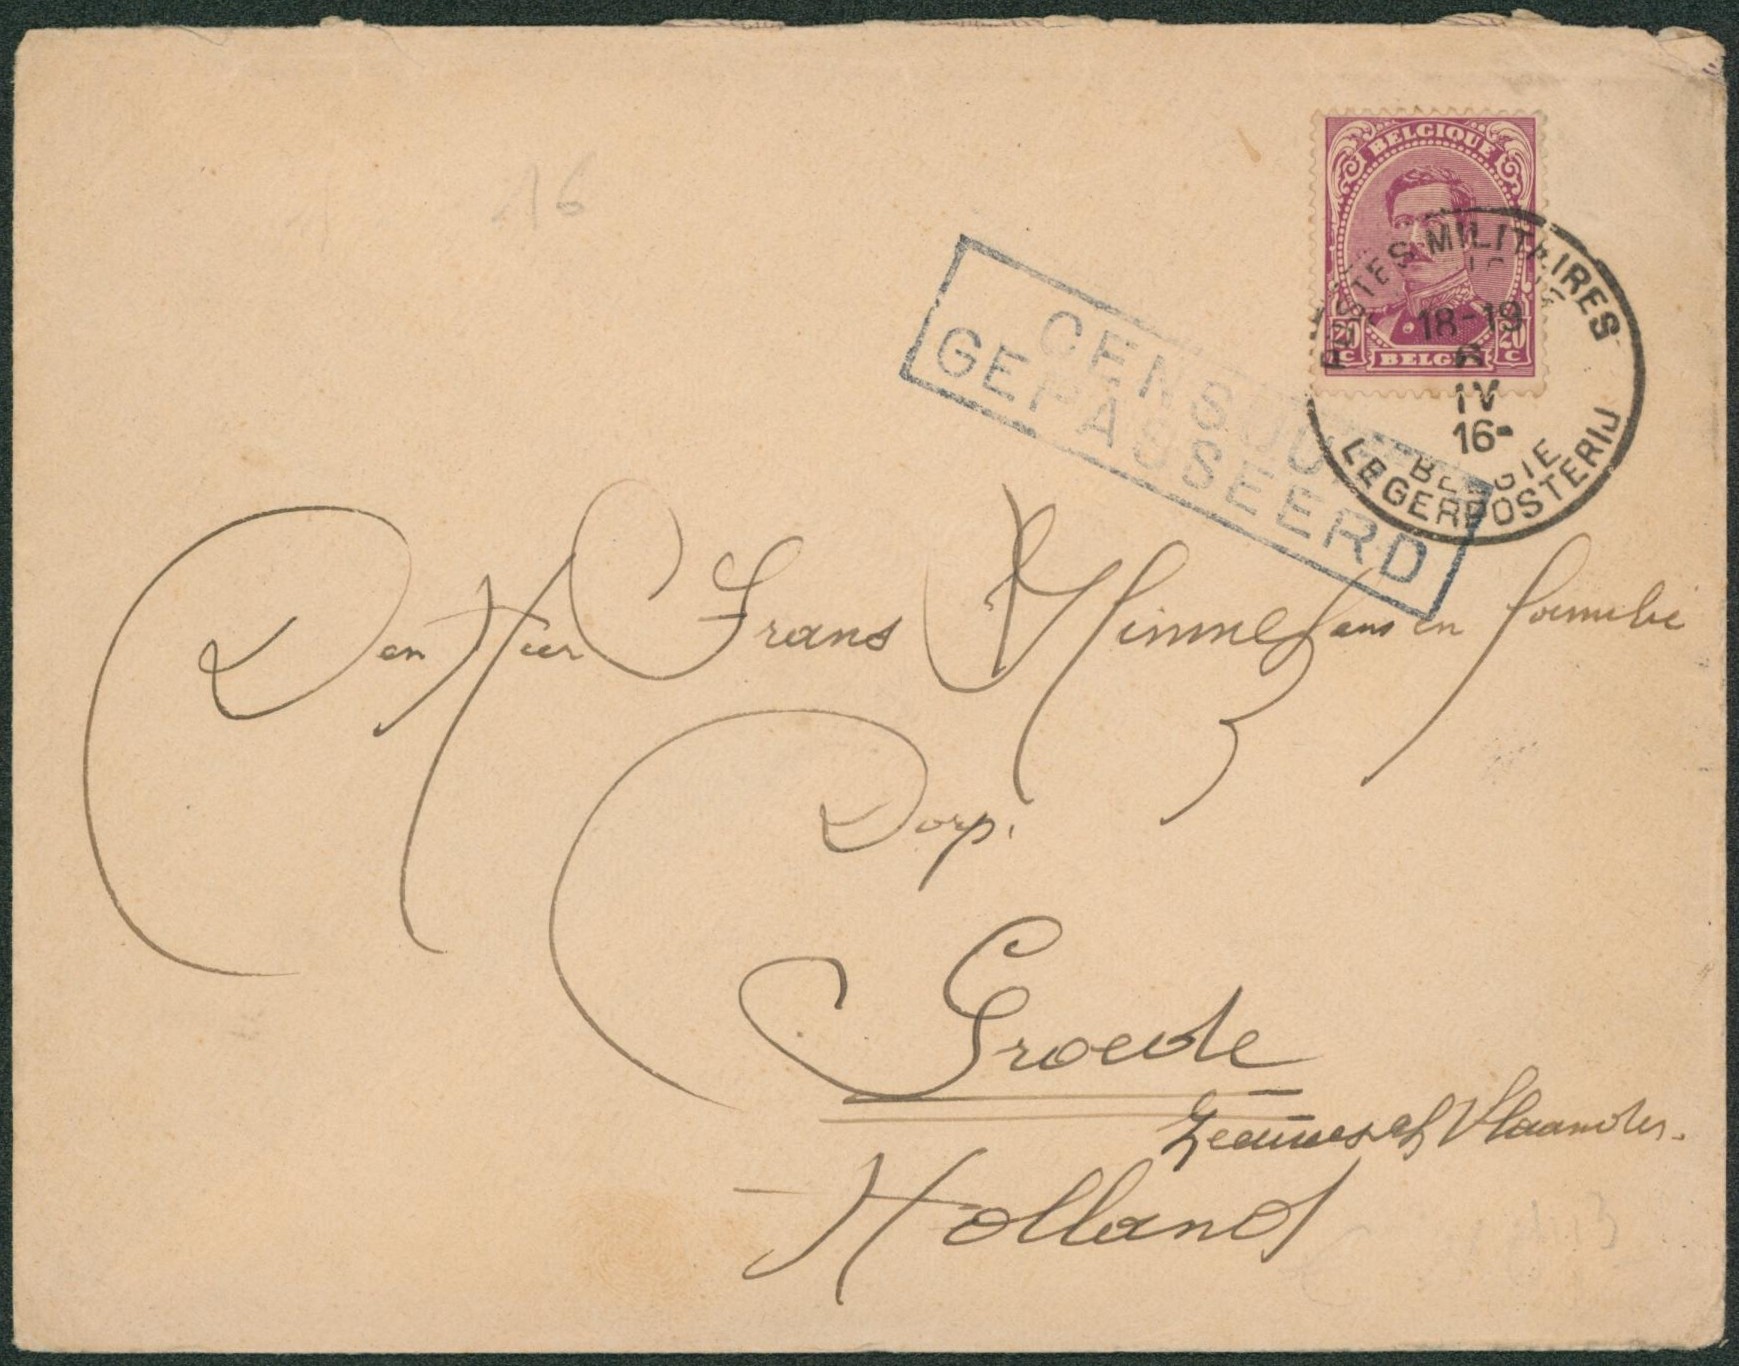 16
BELGIQUE
20 C BELGIË 20 C
POSTES MILITAIRES
18-19
6
IV
16-
BELGIE
LEGERPOSTERIJ
CENSUUR
GEPASSEERD
Den Heer Frans en familie
Dorp.
Groede
Zeeuwsch Vlaander.
Holland